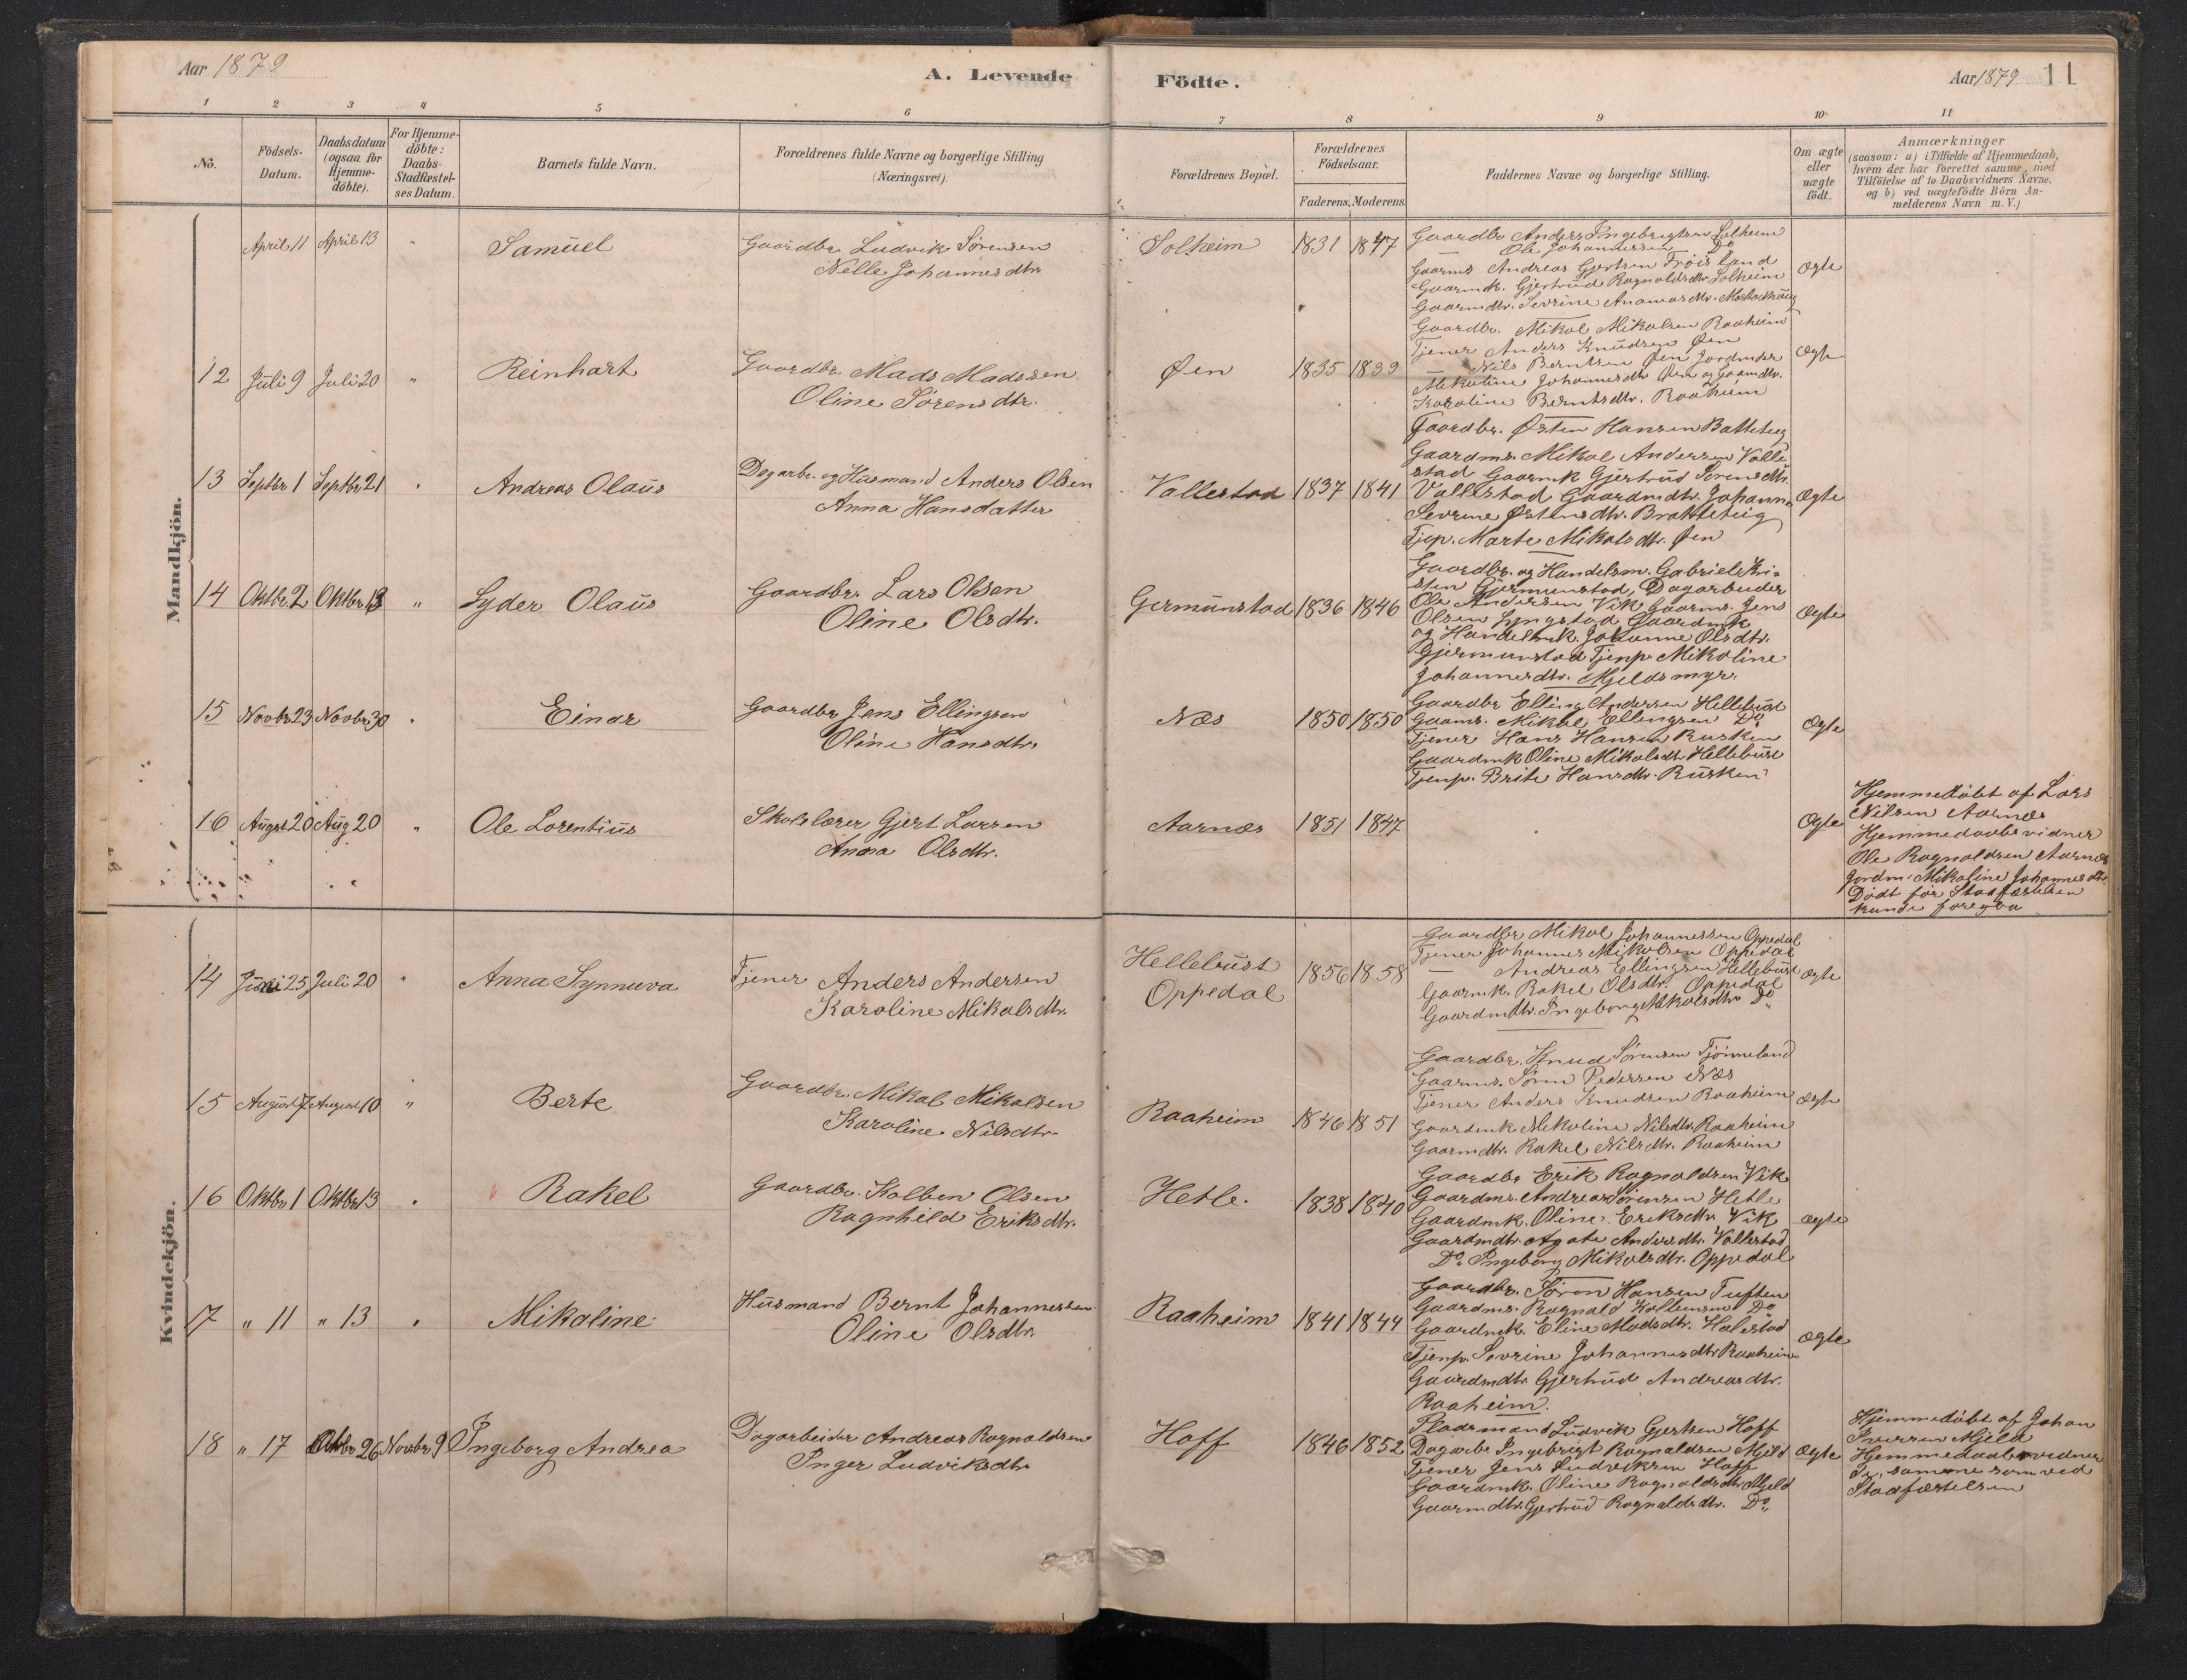 Aar 1879
A. Levende
Födte.
Aar 1879
11
1 2 3 4 5 6 7 8 9 10 11
No.
Födsels-
Datum.
Daabsdatum
(ogsaa for
Hjemme-
döbte).
For Hjemme-
döbte:
Daabs-
Stadfæstel-
ses Datum.
Barnets fulde Navn.
Forældrenes fulde Navne og borgerlige Stilling
(Næringsvei).
Forældrenes Bopæl.
Forældrenes
Födselsaar.
Faderens. Moderens.
Faddernes Navne og borgerlige Stilling.
Om ægte
eller
uægte
födt.
Anmærkninger
(saasom: a) i Tilfælde af Hjemmedaab,
hvem der har forrettet samme, med
Tilföielse af to Daabsvidners Navne.
og b) ved uægtefödte Börn An-
melderens Navn m. V.)
Mandkjön.
April 11 April 13 " Samuel
Gaardbr Ludvik Sørensen
Nelle Johannesdtr.
Solheim 1831 1847
Gaardbr Anders Ingebrigtsen Solheim
— Ole Johannessen Do
Gaarms Andreas Gjertsen Frøisland
Gaarmk. Gjertrud Ragnaldsdtr Solheim
Gaarmdtr. Sevrine
ægte
12 Juli 9 Juli 20 " Reinhart
Gaardbr Mads Madssen
Oline Sørensdtr.
Øen 1835 1839
Gaardbr. Mikal Mikalsen Raaheim
Tjener Anders Knudsen Øen
— Nils Berntsen Øen Jordmder
Mikaline Johannesdtr Øen og Gaarmdtr.
Karoline Berntsdtr. Raaheim
ægte
13 Septbr 1 Septbr 21 " Andreas Olaus
Dagarb. og Husmand Anders Olsen
Anna Hansdatter
Vallestad 1837 1841
Gaardbr. Østen Hansen Batteteig
Gaardms. Mikal Andersen Valle-
stad Gaarmk Gjertrud Sørensdtr.
Vallestad Gaardmdtr. Johanna
Sevrine Østensdtr. Bratteteig
Tjep. Marte Mikalsdtr. Øen
Ægte
14 Oktbr. 2 Oktbr 13 " Syder Olaus
Gaardbr. Lars Olsen
Oline Olsdtr.
Germunstad 1836 1846
Gaardbr. og Handelsm. Gabriel Kri-
sten Gjermunstad, Dagarbeider
Ole Andersen Vik Gaarms. Jens
Olsen Lyngstad Gaardmk
og Handelsmk. Johanne Olsdtr.
Gjermunstad Tjenp Mikoline
Johannesdtr. Mjeldsmyr.
Ægte
15 Novbr 23 Novbr 30 " Einar
Gaardbr Jens Ellingsen
Oline Hansdtr.
Næs 1850 1850
Gaardbr Elling Andersen Hellebust
Gaams. Mikal Ellingsen Do
Tjener Hans Hansen Rusken
Gaardmk Oline Mikalsdtr Hellebust
Tjenp. Brite Hansdtr. Rusken
Ægte
16 August 20 Aug 20 " Ole Lorentius
Skolelærer Gjert Larsen
Anna Olsdtr.
Aarnæs 1851 1847
Ægte
Hjemmedøbt af Lars
Nilsen Aarnæs
Hjemmedaabsvidner
Ole Ragnaldsen Aarnæs
Jordm. Mikaline Johannesdtr.
Dødt før Stadfæstelsen
kunde foregaa
Kvindekjön.
14 Juni 25 Juli 20 " Anna Synneva
Tjener Anders Andersen
Karoline Mikalsdtr.
Hellebust
Oppedal
1856 1858
Gaardbr Mikal Johannessen Oppedal
Tjener Johannes Mikalsen Oppedal
— Andreas Ellingsen Hellebust
Gaarmk. Rakel Olsdtr. Oppedal
Gaardmdtr. Ingeborg Mikalsdtr Do
ægte
15 August 7 August 10 " Berte
Gaardbr. Mikal Mikalsen
Karoline Nilsdtr.
Raaheim 1846 1851
Gaardbr. Knud Sørensen Tjønneland
Gaarms. Søren Pedersen Næs
Tjener Anders Knudsen Raaheim
Gaardmk Mikoline Nilsdtr. Raaheim
Gaarmdtr. Rakel Nilsdtr. Raaheim
ægte
16 Oktbr 1 Oktbr 13 " Rakel
Gaardbr. Kolben Olsen
Ragnhild Eriksdtr.
Hetle. 1838 1840
Gaardbr Erik Ragnaldsen Vik
Gaardms. Andreas Sørensen Hetle
Gaardmk. Oline Eriksdtr. Vik
Gaardmdtr. Agate Andersdtr. Vallestad
Do Ingeborg Mikalsdtr. Oppedal
ægte
17 " 11 " 13 " Mikaline
Husmand Bernt Johannessen
Oline Olsdtr.
Raaheim 1841 1844
Gaardbr. Søren Hansen Tuften
Gaardms. Ragnald Kolbensen Do
Gaardmk. Eline Madsdtr. Halestad
Tjenp. Sevrine Johannesdtr Raaheim
Gaardmdtr Gjertrud Andreasdtr.
Raaheim.
ægte
18 " 17 Oktbr 26 Novbr. 9 Ingeborg Andrea
Dagarbeider Andreas Ragnaldsen
Inger Ludviksdtr
Hoff 1846 1852
Pladsmand Ludvik Gjertsen Hoff
Dagarbr Ingebrigt Ragnaldsen Mjeld
Tjener Jens Ludviksen Hoff
Gaardmk. Oline Ragnaldsdtr Mjeld
Gaarmdtr. Gjertrud Ragnaldsdtr. Do
Ægte
Hjemmedøbt af Johan
Iversen Mjeld
Hjemmedaabsvidner
samme som ved
Stadfæstelsen